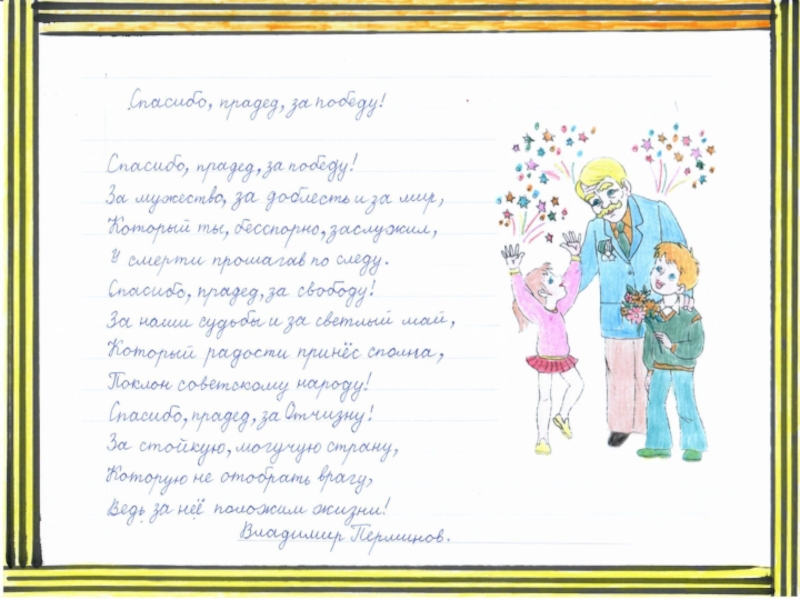 Спасибо, прадед, за победу!
Спасибо, прадед, за победу!
За мужество, за доблесть и за мир,
Который ты, бесспорно, заслужил,
У смерти прошагав по следу.
Спасибо, прадед, за свободу!
За наши судьбы и за светлый май,
Который радости принёс сполна,
Поклон советскому народу!
Спасибо, прадед, за Отчизну!
За стойкую, могучую страну,
Которую не отобрать врагу,
Ведь за неё положим жизни!
Владимир Перминов.